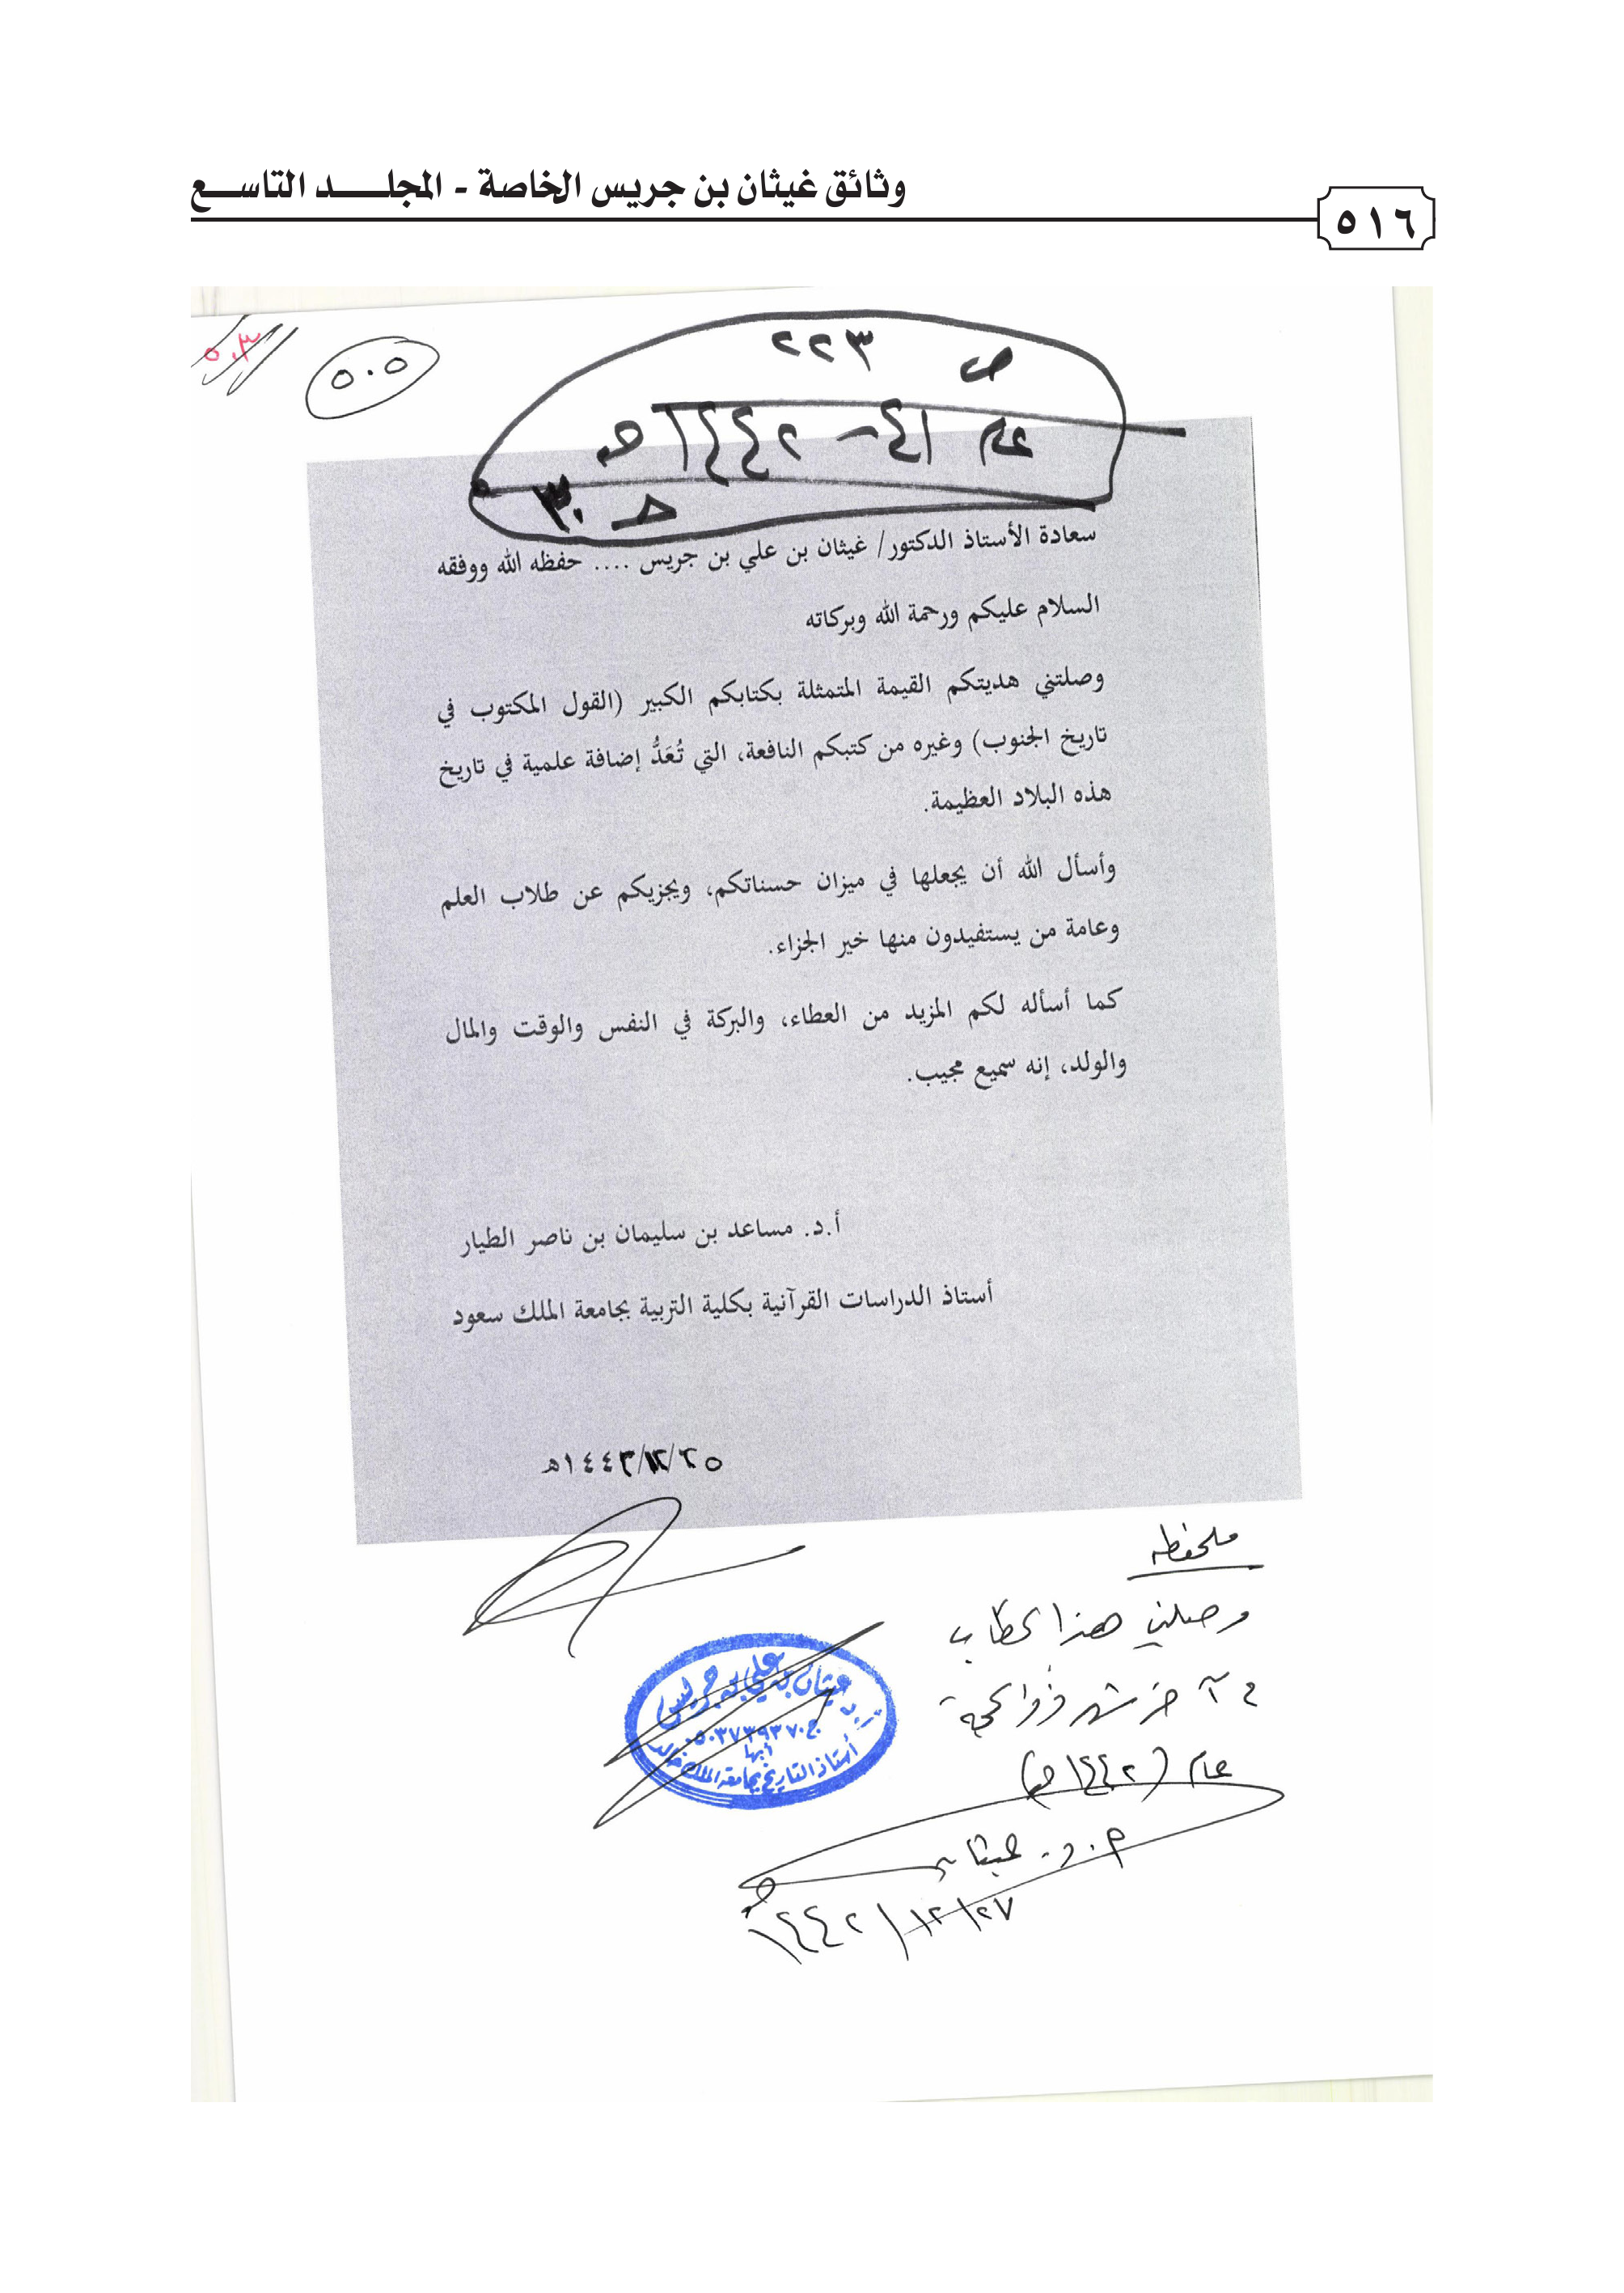 وثائق غيثان بن جريس الخاصة - المجلــــد التاســـع
٥١٦
٥٠٣
٥٠٥
ص ٢٢٣
عام ٤١ – ١٤٤٢هـ
حـ ٣٠
سعادة الأستاذ الدكتور/ غيثان بن علي بن جريس .... حفظه الله ووفقه
السلام عليكم ورحمة الله وبركاته
وصلتني هديتكم القيمة المتمثلة بكتابكم الكبير (القول المكتوب في
تاريخ الجنوب) وغيره من كتبكم النافعة، التي تُعَدُّ إضافة علمية في تاريخ
هذه البلاد العظيمة.
وأسأل الله أن يجعلها في ميزان حسناتكم، ويجزيكم عن طلاب العلم
وعامة من يستفيدون منها خير الجزاء.
كما أسأله لكم المزيد من العطاء، والبركة في النفس والوقت والمال
والولد، إنه سميع مجيب.
أ.د. مساعد بن سليمان بن ناصر الطيار
أستاذ الدراسات القرآنية بكلية التربية بجامعة الملك سعود
ملحفظه
وصلني هذا الخطاب
آخر شهر ذو الحجة
عام (١٤٤٢هـ)
أ.د. غيثان
٢٧/١٢/١٤٤٢هـ
أ.د غيثان بن علي بن جريس
ج ٠٥٠٣٧٣٩٣٧٠
أبها
أستاذ التاريخ بجامعة الملك خالد